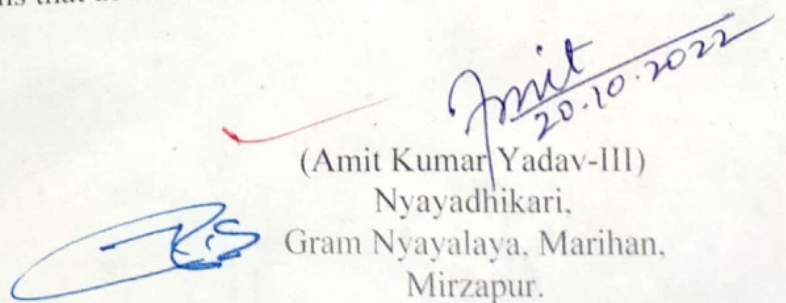 that
Amit
20.10.2022
(Amit Kumar Yadav-III)
Nyayadhikari,
Gram Nyayalaya, Marihan,
Mirzapur.